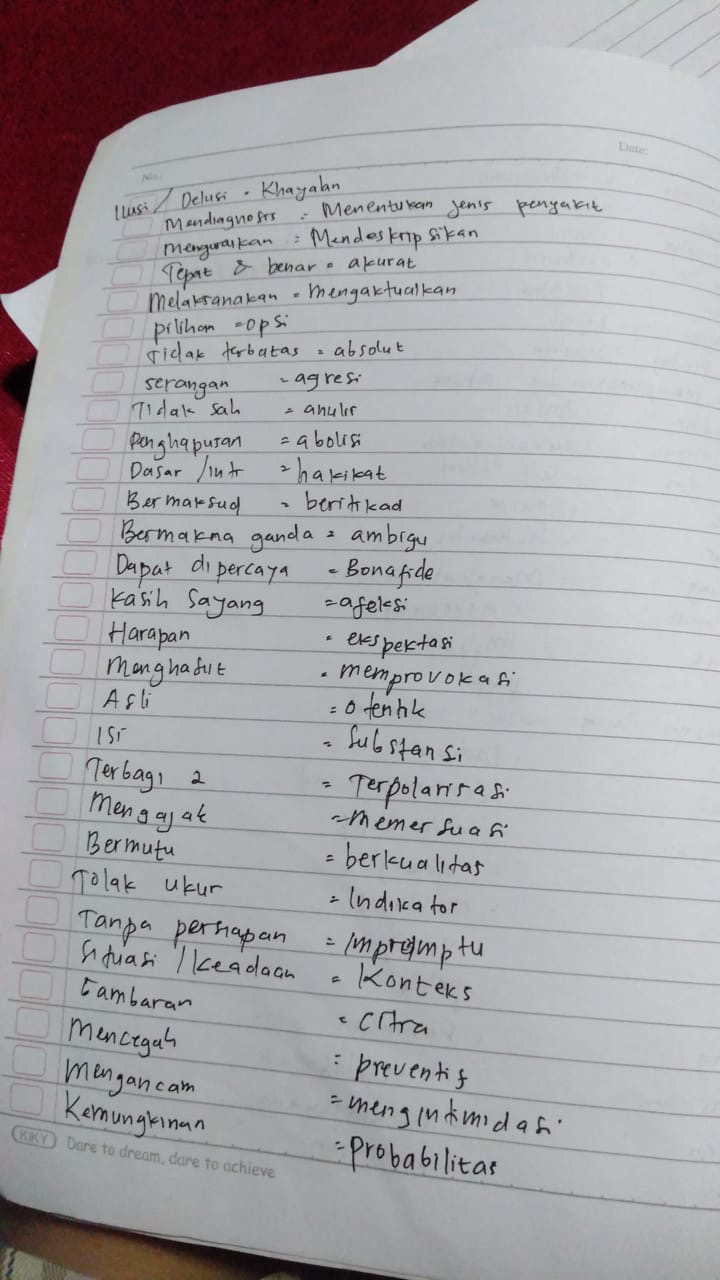 No:
Date:
Ilusi / Delusi = Khayalan
Mendiagnosis = Menentukan jenis penyakit
Menguraikan = Mendeskripsikan
Tepat & benar = akurat
Melaksanakan = mengaktualkan
pilihan = opsi
Tidak terbatas = absolut
serangan = agresi
Tidak sah = anulir
Penghapusan = abolisi
Dasar / inti = hakikat
Bermaksud = beritikad
Bermakna ganda = ambigu
Dapat dipercaya = Bonafide
Kasih Sayang = afeksi
Harapan = ekspektasi
Menghasut = memprovokasi
Asli = otentik
Isi = Substansi
Terbagi 2 = Terpolarisasi
Mengajak = memersuasi
Bermutu = berkualitas
Tolak ukur = Indikator
Tanpa persiapan = Impromptu
Situasi / Keadaan = Konteks
Gambaran = citra
Mencegah = preventif
Mengancam = mengintimidasi
Kemungkinan = Probabilitas
KIKY Dare to dream, dare to achieve